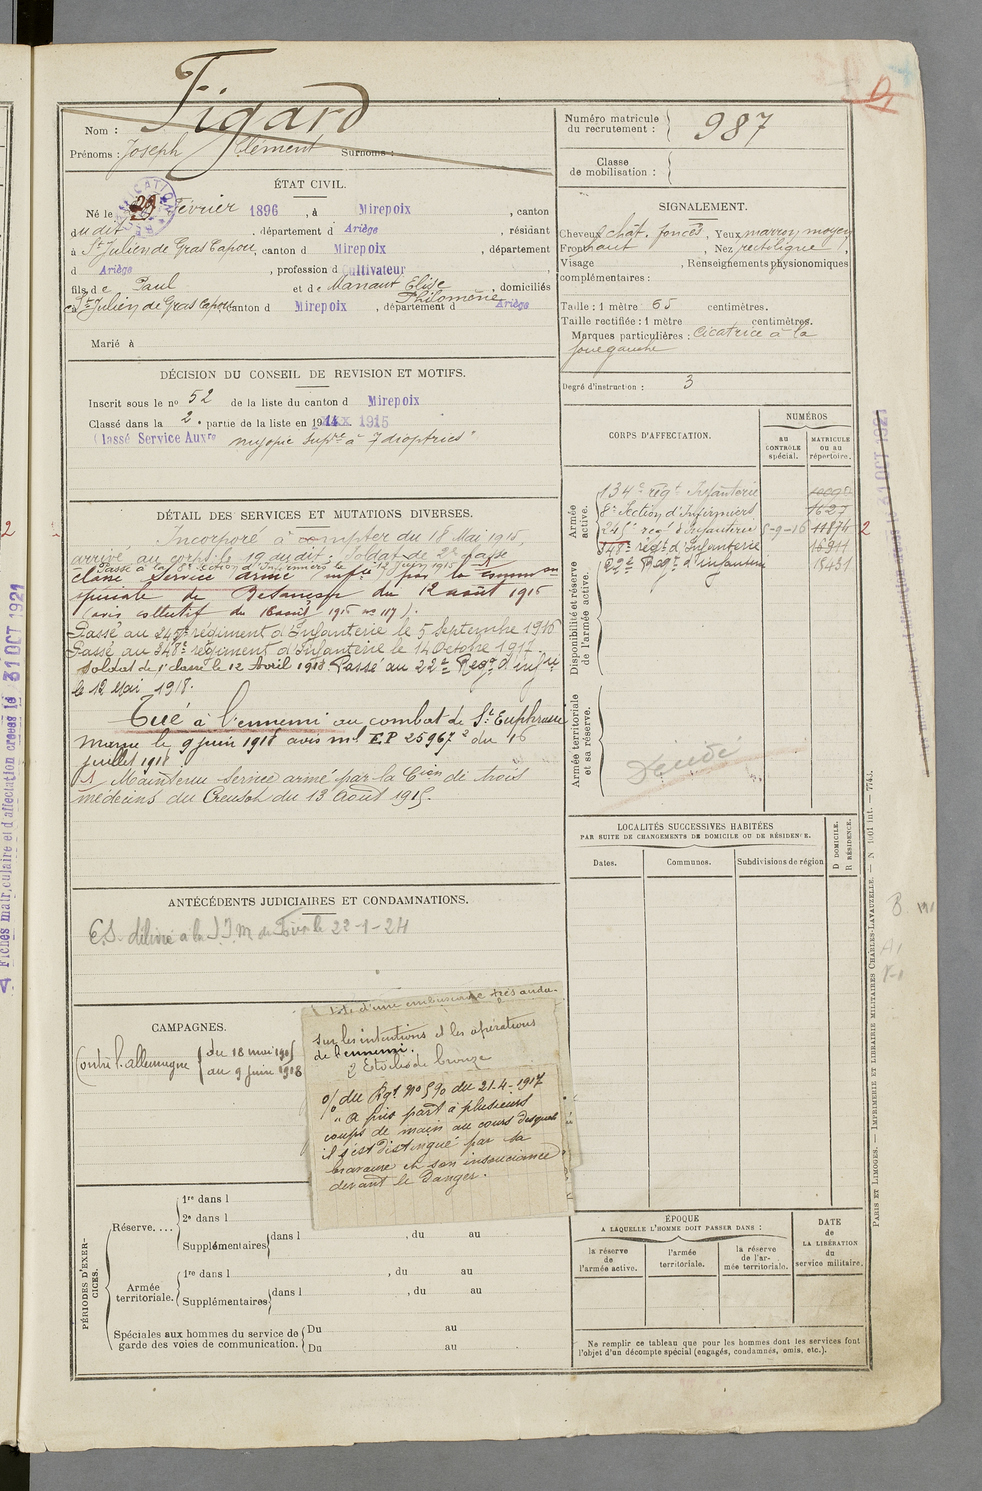 Figard
Nom :
Prénoms : Joseph Clément Surnoms :
Numéro matricule du recrutement : 987
Classe de mobilisation :
ÉTAT CIVIL.
Né le 29 Février 1896, à Mirepoix, canton
du dit, département d Ariège, résidant
à St Julien de Gras Capou, canton d Mirepoix, département
d Ariège, profession d cultivateur
fils de Paul et de Manaut Elise Philomène, domiciliés
à St Julien de Gras Capou, canton d Mirepoix, département d Ariège
Marié à
SIGNALEMENT.
Cheveux chât. foncés, Yeux marron moyen
Front haut, Nez rectiligne
Visage , Renseignements physionomiques
complémentaires :
Taille : 1 mètre 65 centimètres.
Taille rectifiée : 1 mètre centimètres.
Marques particulières : Cicatrice à la
joue gauche
Degré d'instruction : 3
DÉCISION DU CONSEIL DE REVISION ET MOTIFS.
Inscrit sous le no 52 de la liste du canton d Mirepoix
Classé dans la 2e partie de la liste en 1915
Classé Service Auxre myopie supre à 7 dioptries"
DÉTAIL DES SERVICES ET MUTATIONS DIVERSES.
Incorporé à compter du 18 Mai 1915,
arrivé au corps le 19 du dit. Soldat de 2e classe
Passé à la 8e Section d'Infirmiers le 12 juin 1915
classé Service armé par la Commission
spéciale de Besançon du 12 août 1915
(avis collectif du 16 août 1915 no 117).
Passé au 245e régiment d'Infanterie le 5 Septembre 1916
Passé au 348e régiment d'Infanterie le 14 Octobre 1917.
Soldat de 1e classe le 12 Avril 1918. Passé au 22e Regt d'infie
le 12 Mai 1918.
Tué à l'ennemi au combat de Ste Euphraise
Marne le 9 juin 1918 avis ml E.P 25967 du 16
juillet 1918
Maintenu Service armé par la Cion de trois
médecins du Creusot du 13 Août 1915.
CORPS D'AFFECTATION.
NUMÉROS
AU CONTRÔLE spécial.
MATRICULE OU AU répertoire.
Armée active.
134e régt Infanterie
8e Section d'Infirmiers 1627
245e régt d'Infanterie 5-9-16 11874
348e régt d'Infanterie 16911
22e Regt d'infanterie 15451
Disponibilité et réserve de l'armée active.
Armée territoriale et sa réserve.
LOCALITÉS SUCCESSIVES HABITÉES
PAR SUITE DE CHANGEMENTS DE DOMICILE OU DE RÉSIDENCE.
Dates.
Communes.
Subdivisions de région
D DOMICILE. R RÉSIDENCE.
ANTÉCÉDENTS JUDICIAIRES ET CONDAMNATIONS.
E.S. délivré 22-1-24
CAMPAGNES.
Contre l'allemagne { du 18 mai 1915
au 9 juin 1918
d'une embuscade très auda-
sur les intentions et les opérations
de l'ennemi.
2 Etoiles de bronze
o/o du Rgt No 590 du 21-4-1917
"A pris part à plusieurs
coups de main au cours desquels
il s'est distingué par sa
bravoure et son insouciance
devant le danger.
PÉRIODES D'EXERCICES.
Réserve....
1re dans l
2e dans l
Supplémentaires dans l , du au
Armée territoriale.
1re dans l , du au
Supplémentaires dans l , du au
Spéciales aux hommes du service de garde des voies de communication.
Du au
Du au
ÉPOQUE
A LAQUELLE L'HOMME DOIT PASSER DANS :
la réserve de l'armée active.
l'armée territoriale.
la réserve de l'armée territoriale.
DATE de LA LIBÉRATION du service militaire.
Ne remplir ce tableau que pour les hommes dont les services font
l'objet d'un décompte spécial (engagés, condamnés, omis, etc.).
PARIS ET LIMOGES. — IMPRIMERIE ET LIBRAIRIE MILITAIRES CHARLES-LAVAUZELLE.
Fiches matriculaire et d'affectation créées le 31 OCT 1921